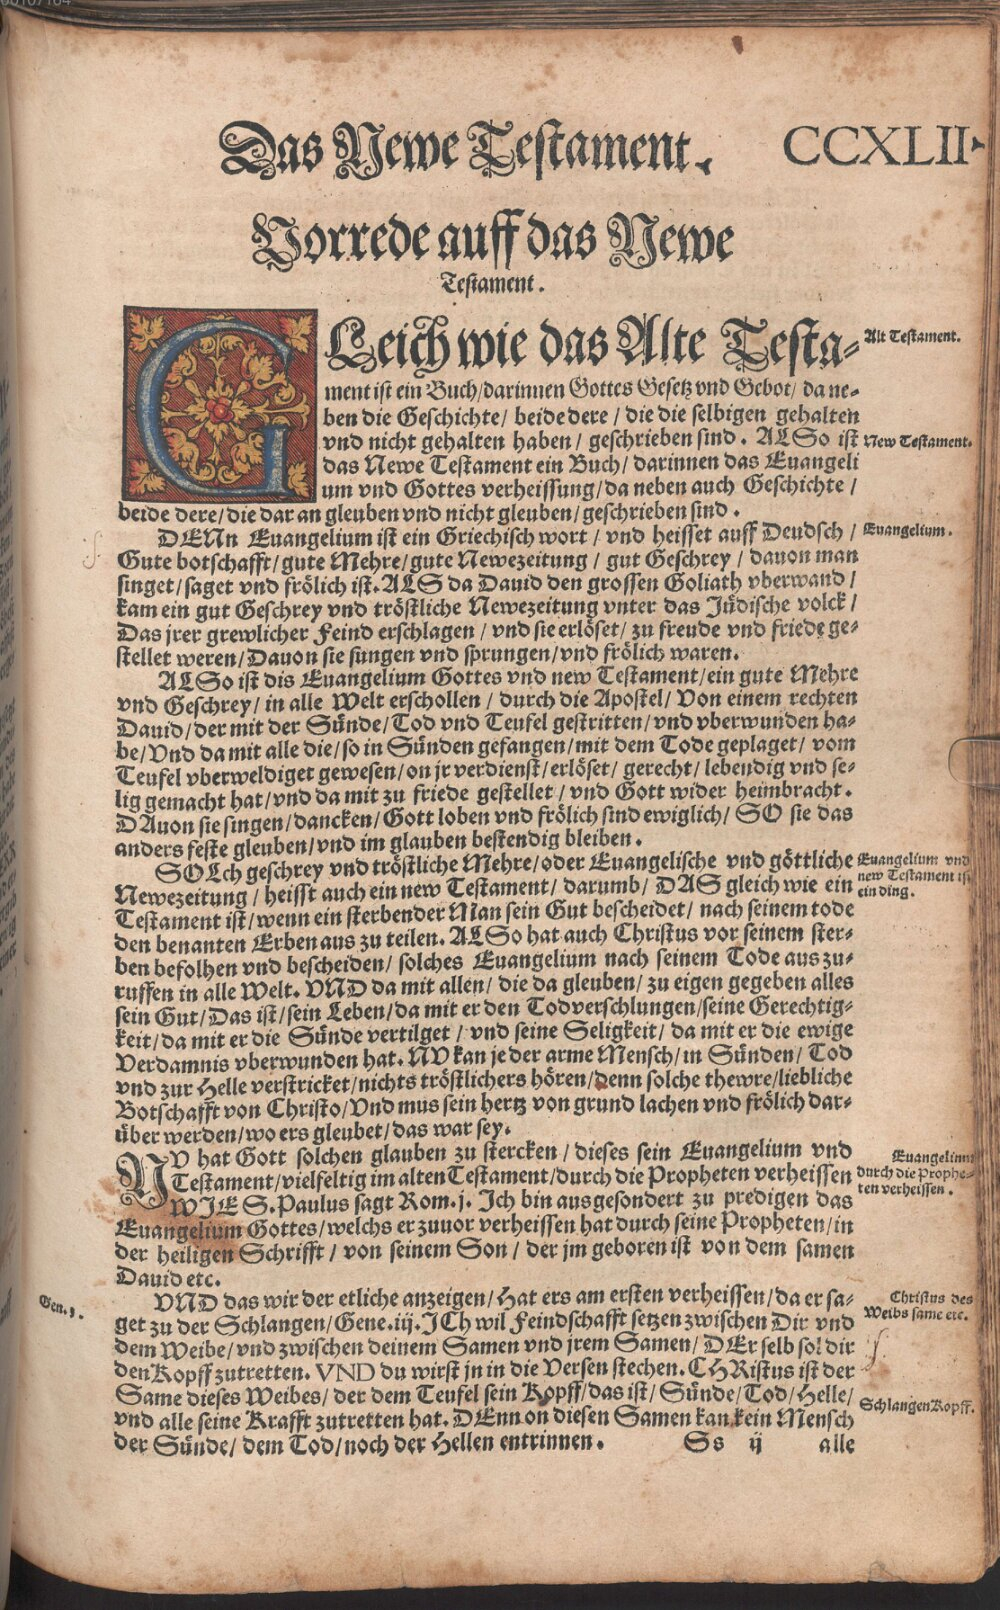 Das Newe Testament. CCXLII
Vorrede auff das Newe
Testament.
GLeich wie das Alte Testa-
ment ist ein Buch/darinnen Gottes Gesetz vnd Gebot/ da ne-
ben die Geschichte/ beide dere / die die selbigen gehalten
vnd nicht gehalten haben / geschrieben sind. ALSo ist
das Newe Testament ein Buch/ darinnen das Euangeli
um vnd Gottes verheissung/da neben auch Geschichte /
beide dere/die dar an gleuben vnd nicht gleuben/geschrieben sind.
Alt Testament.
New Testament.
DENn Euangelium ist ein Griechisch wort / vnd heisset auff Deudsch /
Gute botschafft/gute Mehre/gute Newezeitung / gut Geschrey / dauon man
singet/saget vnd frölich ist. ALS da Dauid den grossen Goliath vberwand /
kam ein gut Geschrey vnd tröstliche Newezeitung vnter das Jüdische volck /
Das jrer grewlicher Feind erschlagen / vnd sie erlöset/ zu freude vnd friede ge-
stellet weren/Dauon sie sungen vnd sprungen/vnd frölich waren.
Euangelium.
ALSo ist dis Euangelium Gottes vnd new Testament/ein gute Mehre
vnd Geschrey/ in alle Welt erschollen / durch die Apostel/ Von einem rechten
Dauid/der mit der Sünde/Tod vnd Teufel gestritten/vnd vberwunden ha-
be/Vnd da mit alle die/so in Sünden gefangen/mit dem Tode geplaget/ vom
Teufel vberweldiget gewesen/on jr verdienst/erlöset/ gerecht/lebendig vnd se-
lig gemacht hat/vnd da mit zu friede gestellet / vnd Gott wider heimbracht.
DAuon sie singen/dancken/Gott loben vnd frölich sind ewiglich/ SO sie das
anders feste gleuben/vnd im glauben bestendig bleiben.
SOLch geschrey vnd tröstliche Mehre/oder Euangelische vnd göttliche
Newezeitung / heisst auch ein new Testament/ darumb/ DAS gleich wie ein
Testament ist/wenn ein sterbender Man sein Gut bescheidet/ nach seinem tode
den benanten Erben aus zu teilen. ALSo hat auch Christus vor seinem ster-
ben befolhen vnd bescheiden/ solches Euangelium nach seinem Tode aus zu-
ruffen in alle Welt. VND da mit allen/ die da gleuben/ zu eigen gegeben alles
sein Gut/Das ist/sein Leben/da mit er den Tod verschlungen/seine Gerechtig-
keit/da mit er die Sünde vertilget / vnd seine Seligkeit/ da mit er die ewige
Verdamnis vberwunden hat. NV kan je der arme Mensch/in Sünden/ Tod
vnd zur Helle verstricket/nichts tröstlichers hören/denn solche thewre/liebliche
Botschafft von Christo/Vnd mus sein hertz von grund lachen vnd frölich dar-
über werden/wo ers gleubet/das war sey.
Euangelium vnd
new Testament ist
ein ding.
NV hat Gott solchen glauben zu stercken / dieses sein Euangelium vnd
Testament/vielfeltig im alten Testament/durch die Propheten verheissen
WJE S. Paulus sagt Rom. j. Ich bin ausgesondert zu predigen das
Euangelium Gottes/welchs er zuuor verheissen hat durch seine Propheten/in
der heiligen Schrifft / von seinem Son / der jm geboren ist von dem samen
Dauid etc.
Euangelium
durch die Prophe-
ten verheissen.
VND das wir der etliche anzeigen/Hat ers am ersten verheissen/da er sa-
get zu der Schlangen/Gene. iij. JCh wil Feindschafft setzen zwischen Dir vnd
dem Weibe/vnd zwischen deinem Samen vnd jrem Samen/DEr selb sol dir
den Kopff zutretten. VND du wirst jn in die Versen stechen. CHRistus ist der
Same dieses Weibes/ der dem Teufel sein Kopff/das ist/ Sünde/Tod/Helle/
vnd alle seine Krafft zutretten hat. DEnn on diesen Samen kan kein Mensch
der Sünde/ dem Tod/noch der Hellen entrinnen. Ss ij alle
Gen. 3.
Christus des
Weibs same etc.
Schlangen Kopff.